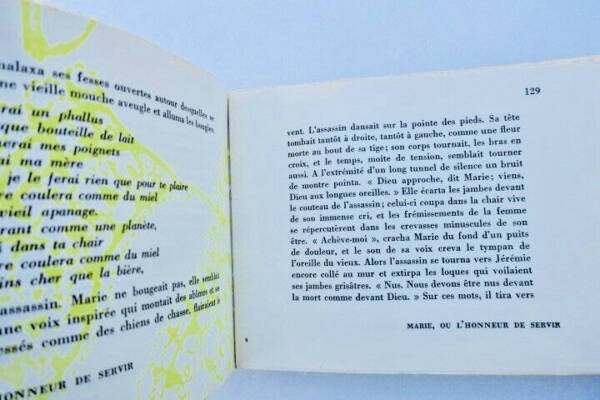 malaxa ses fesses ouvertes autour desquelles se
ne vieille mouche aveugle et alluma les bougies.
rai un phallus
que bouteille de lait
nerai mes poignets
ai ma mère
je le ferai rien que pour te plaire
re coulera comme du miel
vieil apanage.
rant comme une planète,
i dans ta chair
re coulera comme du miel
ins cher que la bière,
assassin. Marie ne bougeait pas, elle semblait
ne voix inspirée qui montait des abîmes et se
essés comme des chiens de chasse, flairaient
HONNEUR DE SERVIR
129
vent. L'assassin dansait sur la pointe des pieds. Sa tête
tombait tantôt à droite, tantôt à gauche, comme une fleur
morte au bout de sa tige ; son corps tournait, les bras en
croix, et le temps, moite de tension, semblait tourner
aussi. A l'extrémité d'un long tunnel de silence un bruit
de montre pointa. « Dieu approche, dit Marie ; viens,
Dieu aux longues oreilles. » Elle écarta les jambes devant
le couteau de l'assassin ; celui-ci coupa dans la chair vive
de son immense cri, et les frémissements de la femme
se répercutèrent dans les crevasses minuscules de son
être. « Achève-moi », cracha Marie du fond d'un puits
de douleur, et le son de sa voix creva le tympan de
l'oreille du vieux. Alors l'assassin se tourna vers Jérémie
encore collé au mur et extirpa les loques qui voilaient
ses jambes grisâtres. « Nus. Nous devons être nus devant
la mort comme devant Dieu. » Sur ces mots, il tira vers
MARIE, OU L'HONNEUR DE SERVIR